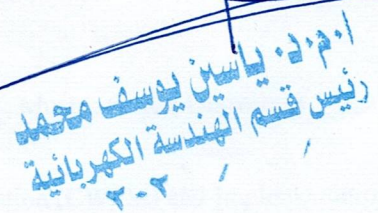 ا.م.د. ياسين يوسف محمد
رئيس قسم الهندسة الكهربائية
/ / ٢٠٢